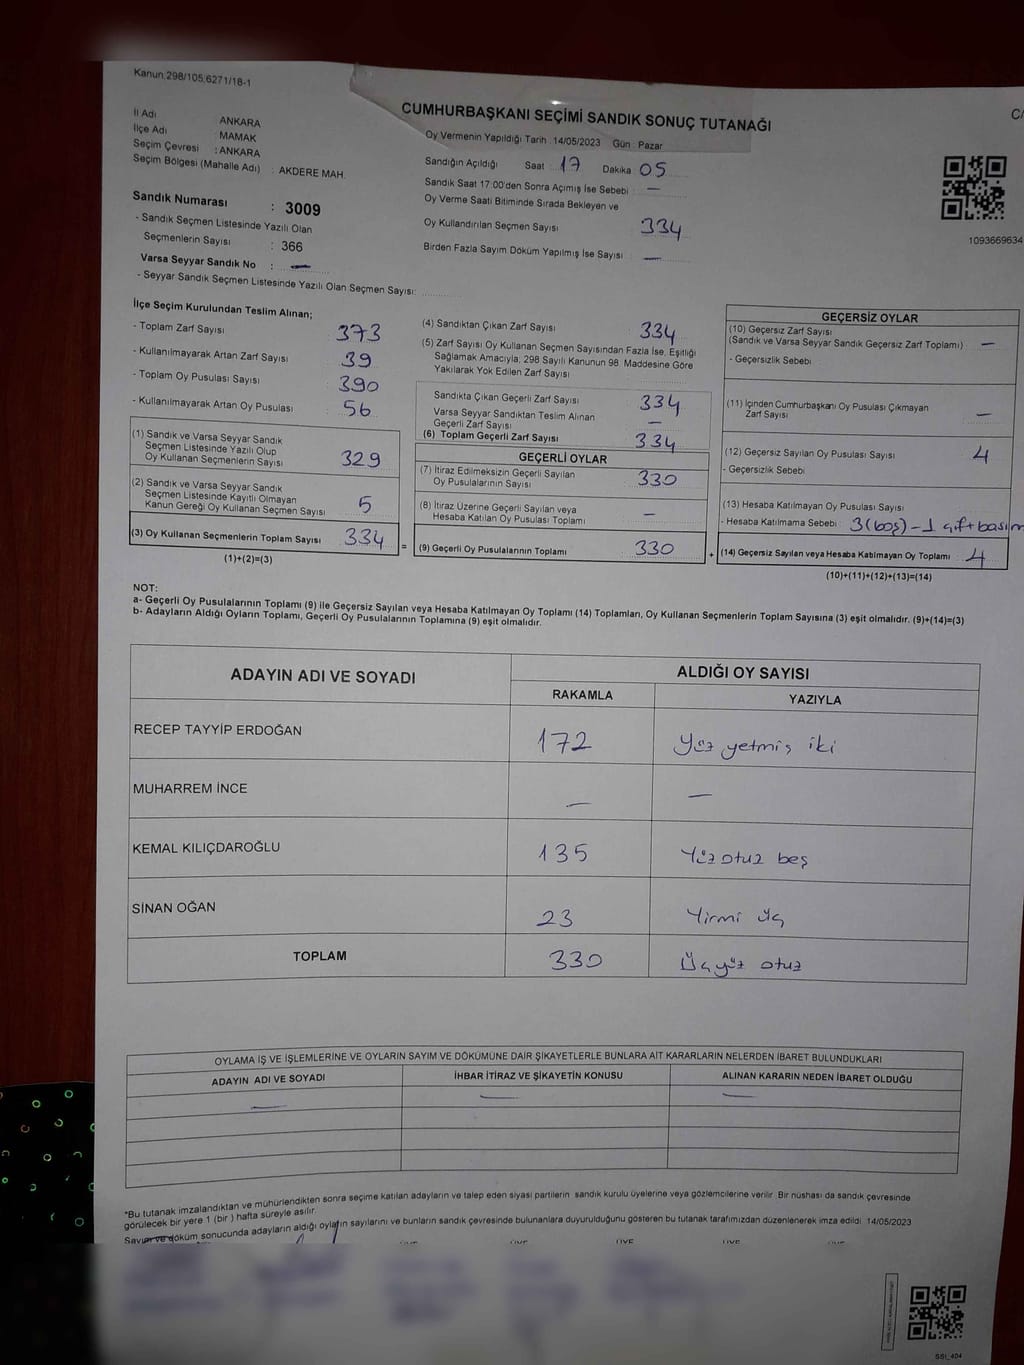 Kanun;298/105,6271/18-1
CUMHURBAŞKANI SEÇİMİ SANDIK SONUÇ TUTANAĞI
Oy Vermenin Yapıldığı Tarih : 14/05/2023 Gün : Pazar
İl Adı : ANKARA
İlçe Adı : MAMAK
Seçim Çevresi : ANKARA
Seçim Bölgesi (Mahalle Adı) : AKDERE MAH.
Sandık Numarası : 3009
- Sandık Seçmen Listesinde Yazılı Olan
Seçmenlerin Sayısı : 366
Varsa Seyyar Sandık No : —
- Seyyar Sandık Seçmen Listesinde Yazılı Olan Seçmen Sayısı:
Sandığın Açıldığı Saat 17 Dakika 05
Sandık Saat 17:00'den Sonra Açımış İse Sebebi : —
Oy Verme Saati Bitiminde Sırada Bekleyen ve
Oy Kullandırılan Seçmen Sayısı 334
Birden Fazla Sayım Döküm Yapılmış İse Sayısı —
1093669634
İlçe Seçim Kurulundan Teslim Alınan;
- Toplam Zarf Sayısı 373
- Kullanılmayarak Artan Zarf Sayısı 39
- Toplam Oy Pusulası Sayısı 390
- Kullanılmayarak Artan Oy Pusulası 56
(1) Sandık ve Varsa Seyyar Sandık
Seçmen Listesinde Yazılı Olup
Oy Kullanan Seçmenlerin Sayısı 329
(2) Sandık ve Varsa Seyyar Sandık
Seçmen Listesinde Kayıtlı Olmayan
Kanun Gereği Oy Kullanan Seçmen Sayısı 5
(3) Oy Kullanan Seçmenlerin Toplam Sayısı 334
(1)+(2)=(3)
(4) Sandıktan Çıkan Zarf Sayısı 334
(5) Zarf Sayısı Oy Kullanan Seçmen Sayısından Fazla İse, Eşitliği
Sağlamak Amacıyla, 298 Sayılı Kanunun 98 Maddesine Göre
Yakılarak Yok Edilen Zarf Sayısı
Sandıkta Çıkan Geçerli Zarf Sayısı 334
Varsa Seyyar Sandıktan Teslim Alınan
Geçerli Zarf Sayısı —
(6) Toplam Geçerli Zarf Sayısı 334
GEÇERLİ OYLAR
(7) İtiraz Edilmeksizin Geçerli Sayılan
Oy Pusulalarının Sayısı 330
(8) İtiraz Üzerine Geçerli Sayılan veya
Hesaba Katılan Oy Pusulası Toplamı —
= (9) Geçerli Oy Pusulalarının Toplamı 330 +
GEÇERSİZ OYLAR
(10) Geçersiz Zarf Sayısı
(Sandık ve Varsa Seyyar Sandık Geçersiz Zarf Toplamı) —
- Geçersizlik Sebebi
(11) İçinden Cumhurbaşkanı Oy Pusulası Çıkmayan
Zarf Sayısı —
(12) Geçersiz Sayılan Oy Pusulası Sayısı 4
- Geçersizlik Sebebi
(13) Hesaba Katılmayan Oy Pusulası Sayısı
- Hesaba Katılmama Sebebi 3(boş)-1 çift basım
(14) Geçersiz Sayılan veya Hesaba Katılmayan Oy Toplamı 4
(10)+(11)+(12)+(13)=(14)
NOT:
a- Geçerli Oy Pusulalarının Toplamı (9) ile Geçersiz Sayılan veya Hesaba Katılmayan Oy Toplamı (14) Toplamları, Oy Kullanan Seçmenlerin Toplam Sayısına (3) eşit olmalıdır. (9)+(14)=(3)
b- Adayların Aldığı Oyların Toplamı, Geçerli Oy Pusulalarının Toplamına (9) eşit olmalıdır.
ADAYIN ADI VE SOYADI ALDIĞI OY SAYISI
RAKAMLA YAZIYLA
RECEP TAYYİP ERDOĞAN 172 Yüz yetmiş iki
MUHARREM İNCE — —
KEMAL KILIÇDAROĞLU 135 Yüz otuz beş
SİNAN OĞAN 23 Yirmi üç
TOPLAM 330 Üçyüz otuz
OYLAMA İŞ VE İŞLEMLERİNE VE OYLARIN SAYIM VE DÖKÜMÜNE DAİR ŞİKAYETLERLE BUNLARA AİT KARARLARIN NELERDEN İBARET BULUNDUKLARI
ADAYIN ADI VE SOYADI İHBAR İTİRAZ VE ŞİKAYETİN KONUSU ALINAN KARARIN NEDEN İBARET OLDUĞU
— — —
*Bu tutanak imzalandıktan ve mühürlendikten sonra seçime katılan adayların ve talep eden siyasi partilerin sandık kurulu üyelerine veya gözlemcilerine verilir. Bir nüshası da sandık çevresinde
görülecek bir yere 1 (bir ) hafta süreyle asılır.
Sayım ve döküm sonucunda adayların aldığı oyların sayılarını ve bunların sandık çevresinde bulunanlara duyurulduğunu gösteren bu tutanak tarafımızdan düzenlenerek imza edildi. 14/05/2023
ÜYE ÜYE ÜYE ÜYE ÜYE
SSI_404